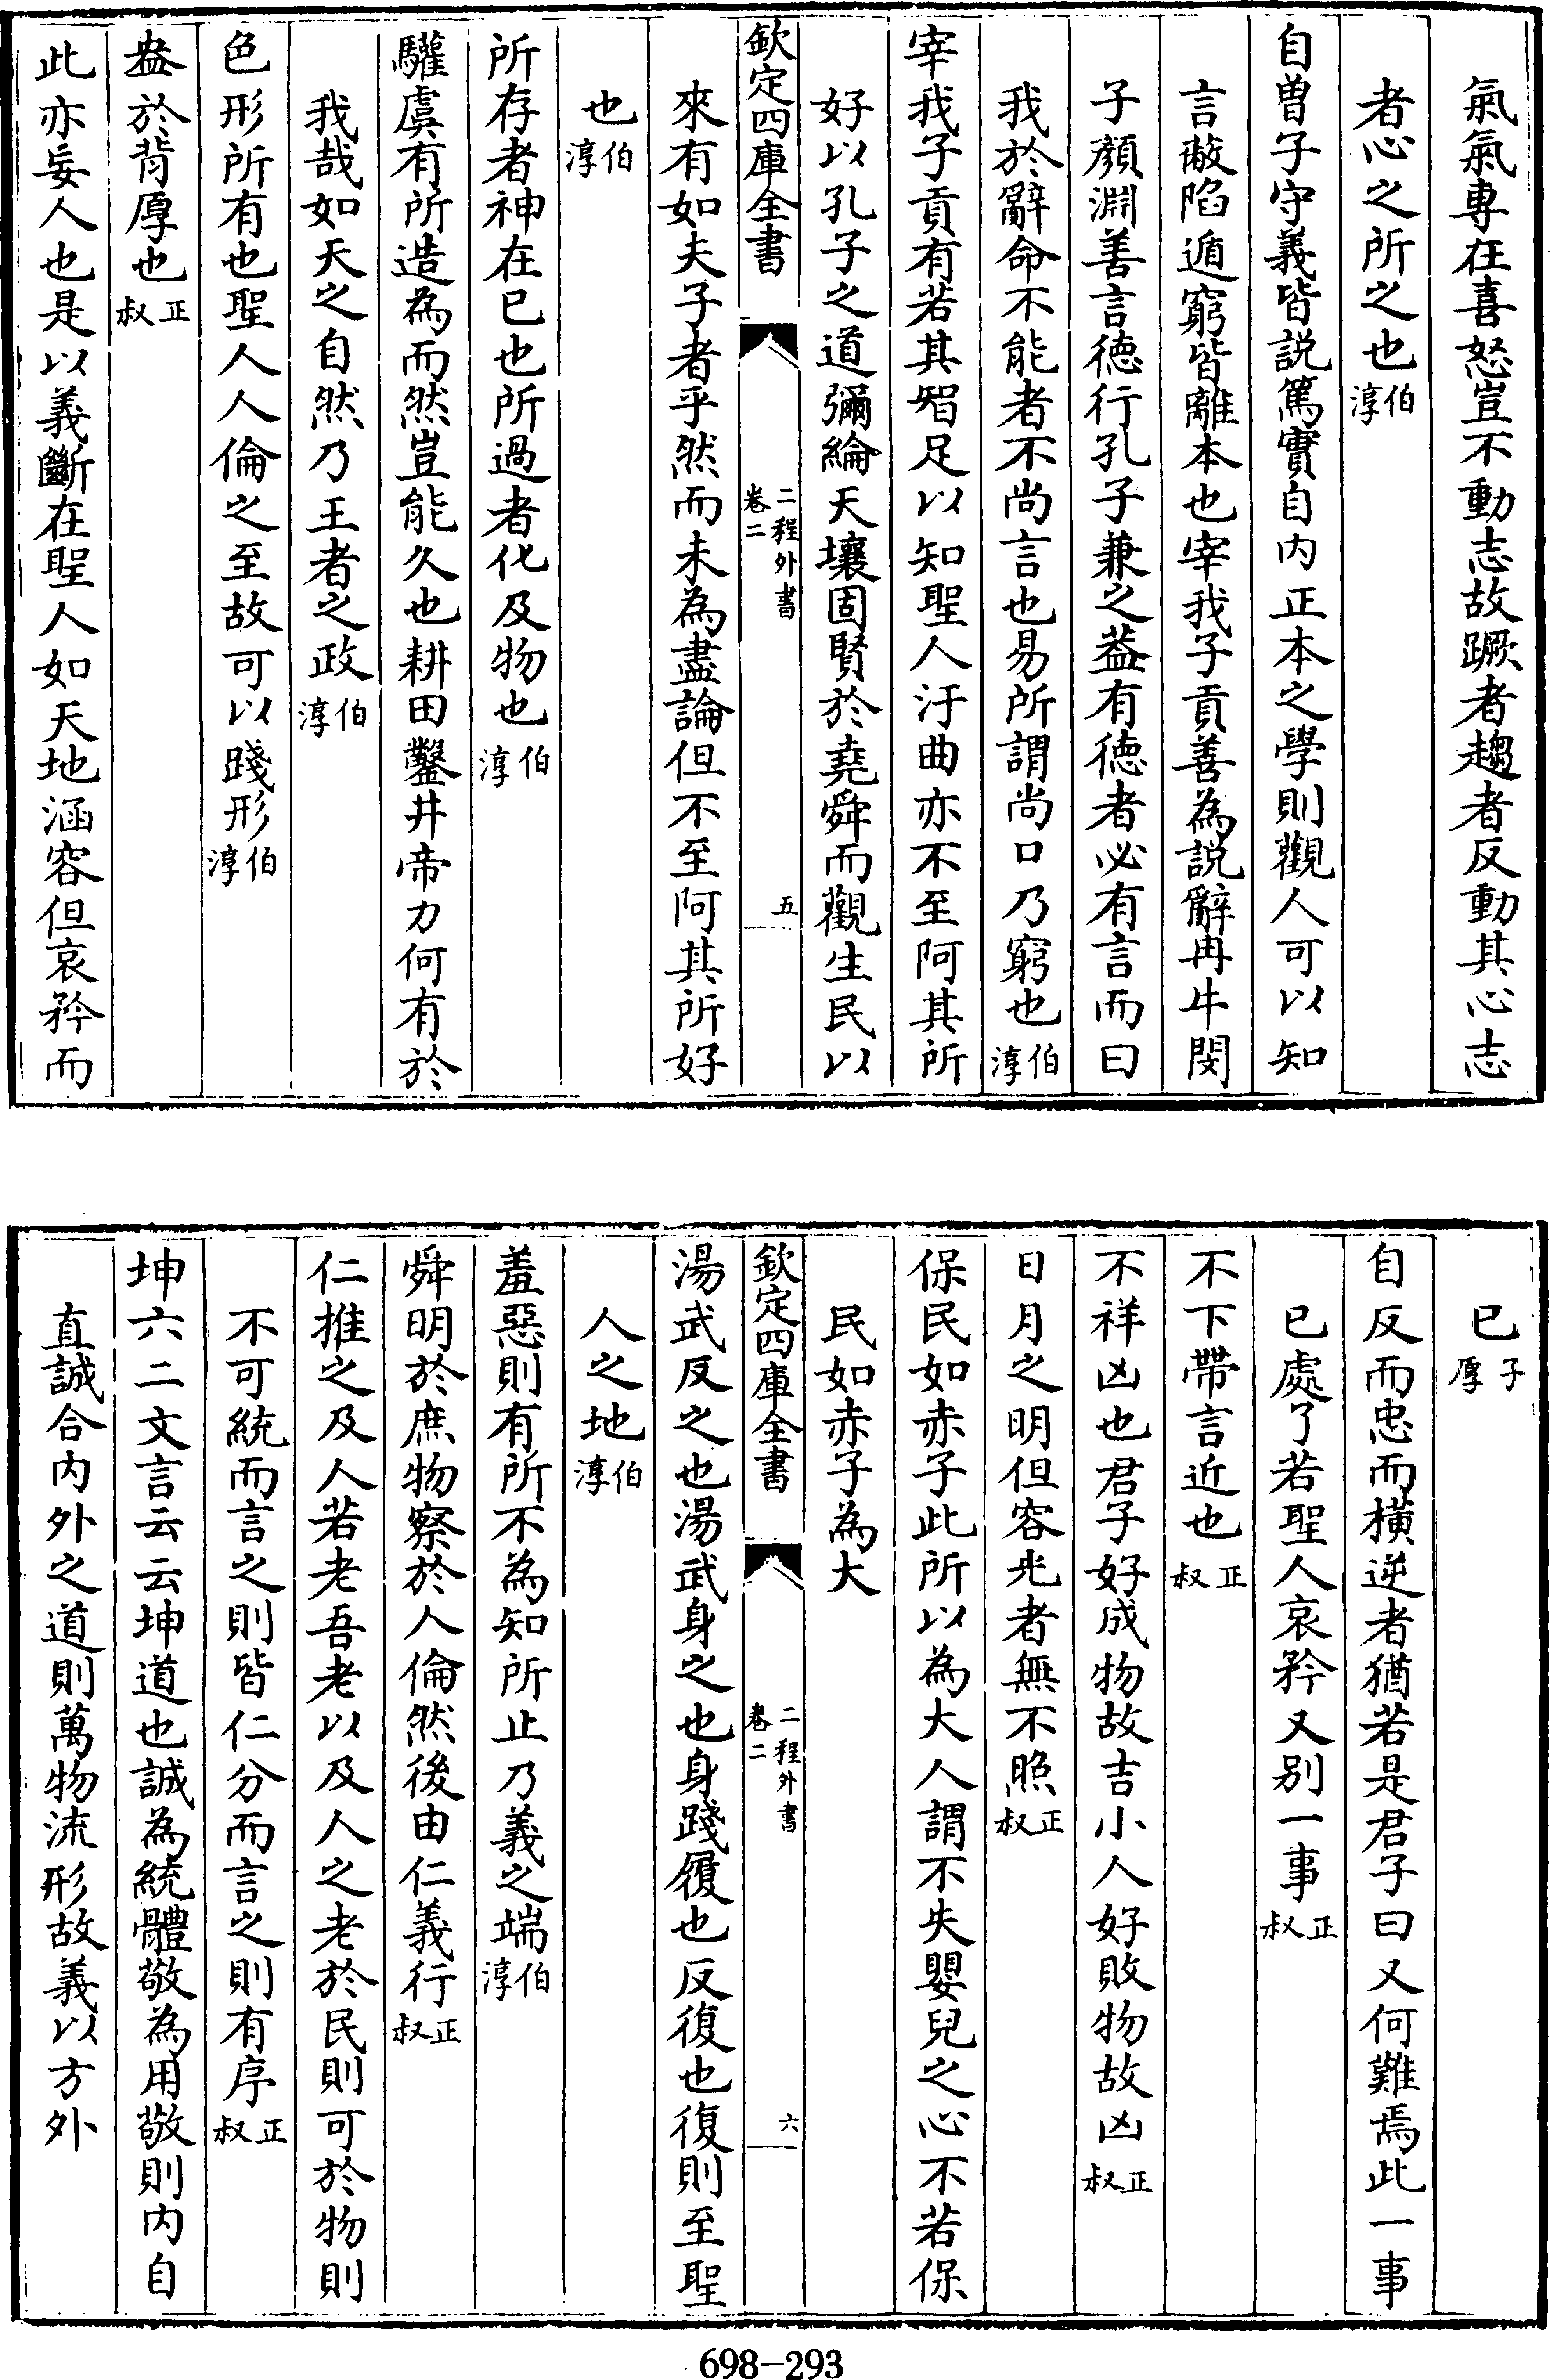 氣氣專在喜怒豈不動志故蹶者趨者反動其心志
者心之所之也伯淳
自曾子守義皆説篤實自内正本之學則觀人可以知
言蔽陷遁窮皆離本也宰我子貢善為説辭冉牛閔
子顔淵善言徳行孔子兼之葢有徳者必有言而曰
我於辭命不能者不尚言也易所謂尚口乃窮也伯淳
宰我子貢有若其智足以知聖人汙曲亦不至阿其所
好以孔子之道彌綸天壤固賢於堯舜而觀生民以
欽定四庫全書 二程外書 卷二 五
來有如夫子者乎然而未為盡論但不至阿其所好
也伯淳
所存者神在已也所過者化及物也伯淳
驩虞有所造為而然豈能久也耕田鑿井帝力何有於
我哉如天之自然乃王者之政伯淳
色形所有也聖人人倫之至故可以踐形伯淳
盎於背厚也正叔
此亦妄人也是以義斷在聖人如天地涵容但哀矜而
已子厚
自反而忠而横逆者猶若是君子曰又何難焉此一事
已處了若聖人哀矜又别一事正叔
不下帶言近也正叔
不祥凶也君子好成物故吉小人好敗物故凶正叔
日月之明但容光者無不照正叔
保民如赤子此所以為大人謂不失嬰兒之心不若保
民如赤子為大
欽定四庫全書 二程外書 卷二 六
湯武反之也湯武身之也身踐履也反復也復則至聖
人之地伯淳
羞惡則有所不為知所止乃義之端伯淳
舜明於庶物察於人倫然後由仁義行正叔
仁推之及人若老吾老以及人之老於民則可於物則
不可統而言之則皆仁分而言之則有序正叔
坤六二文言云云坤道也誠為統體敬為用敬則内自
直誠合内外之道則萬物流形故義以方外
698-293